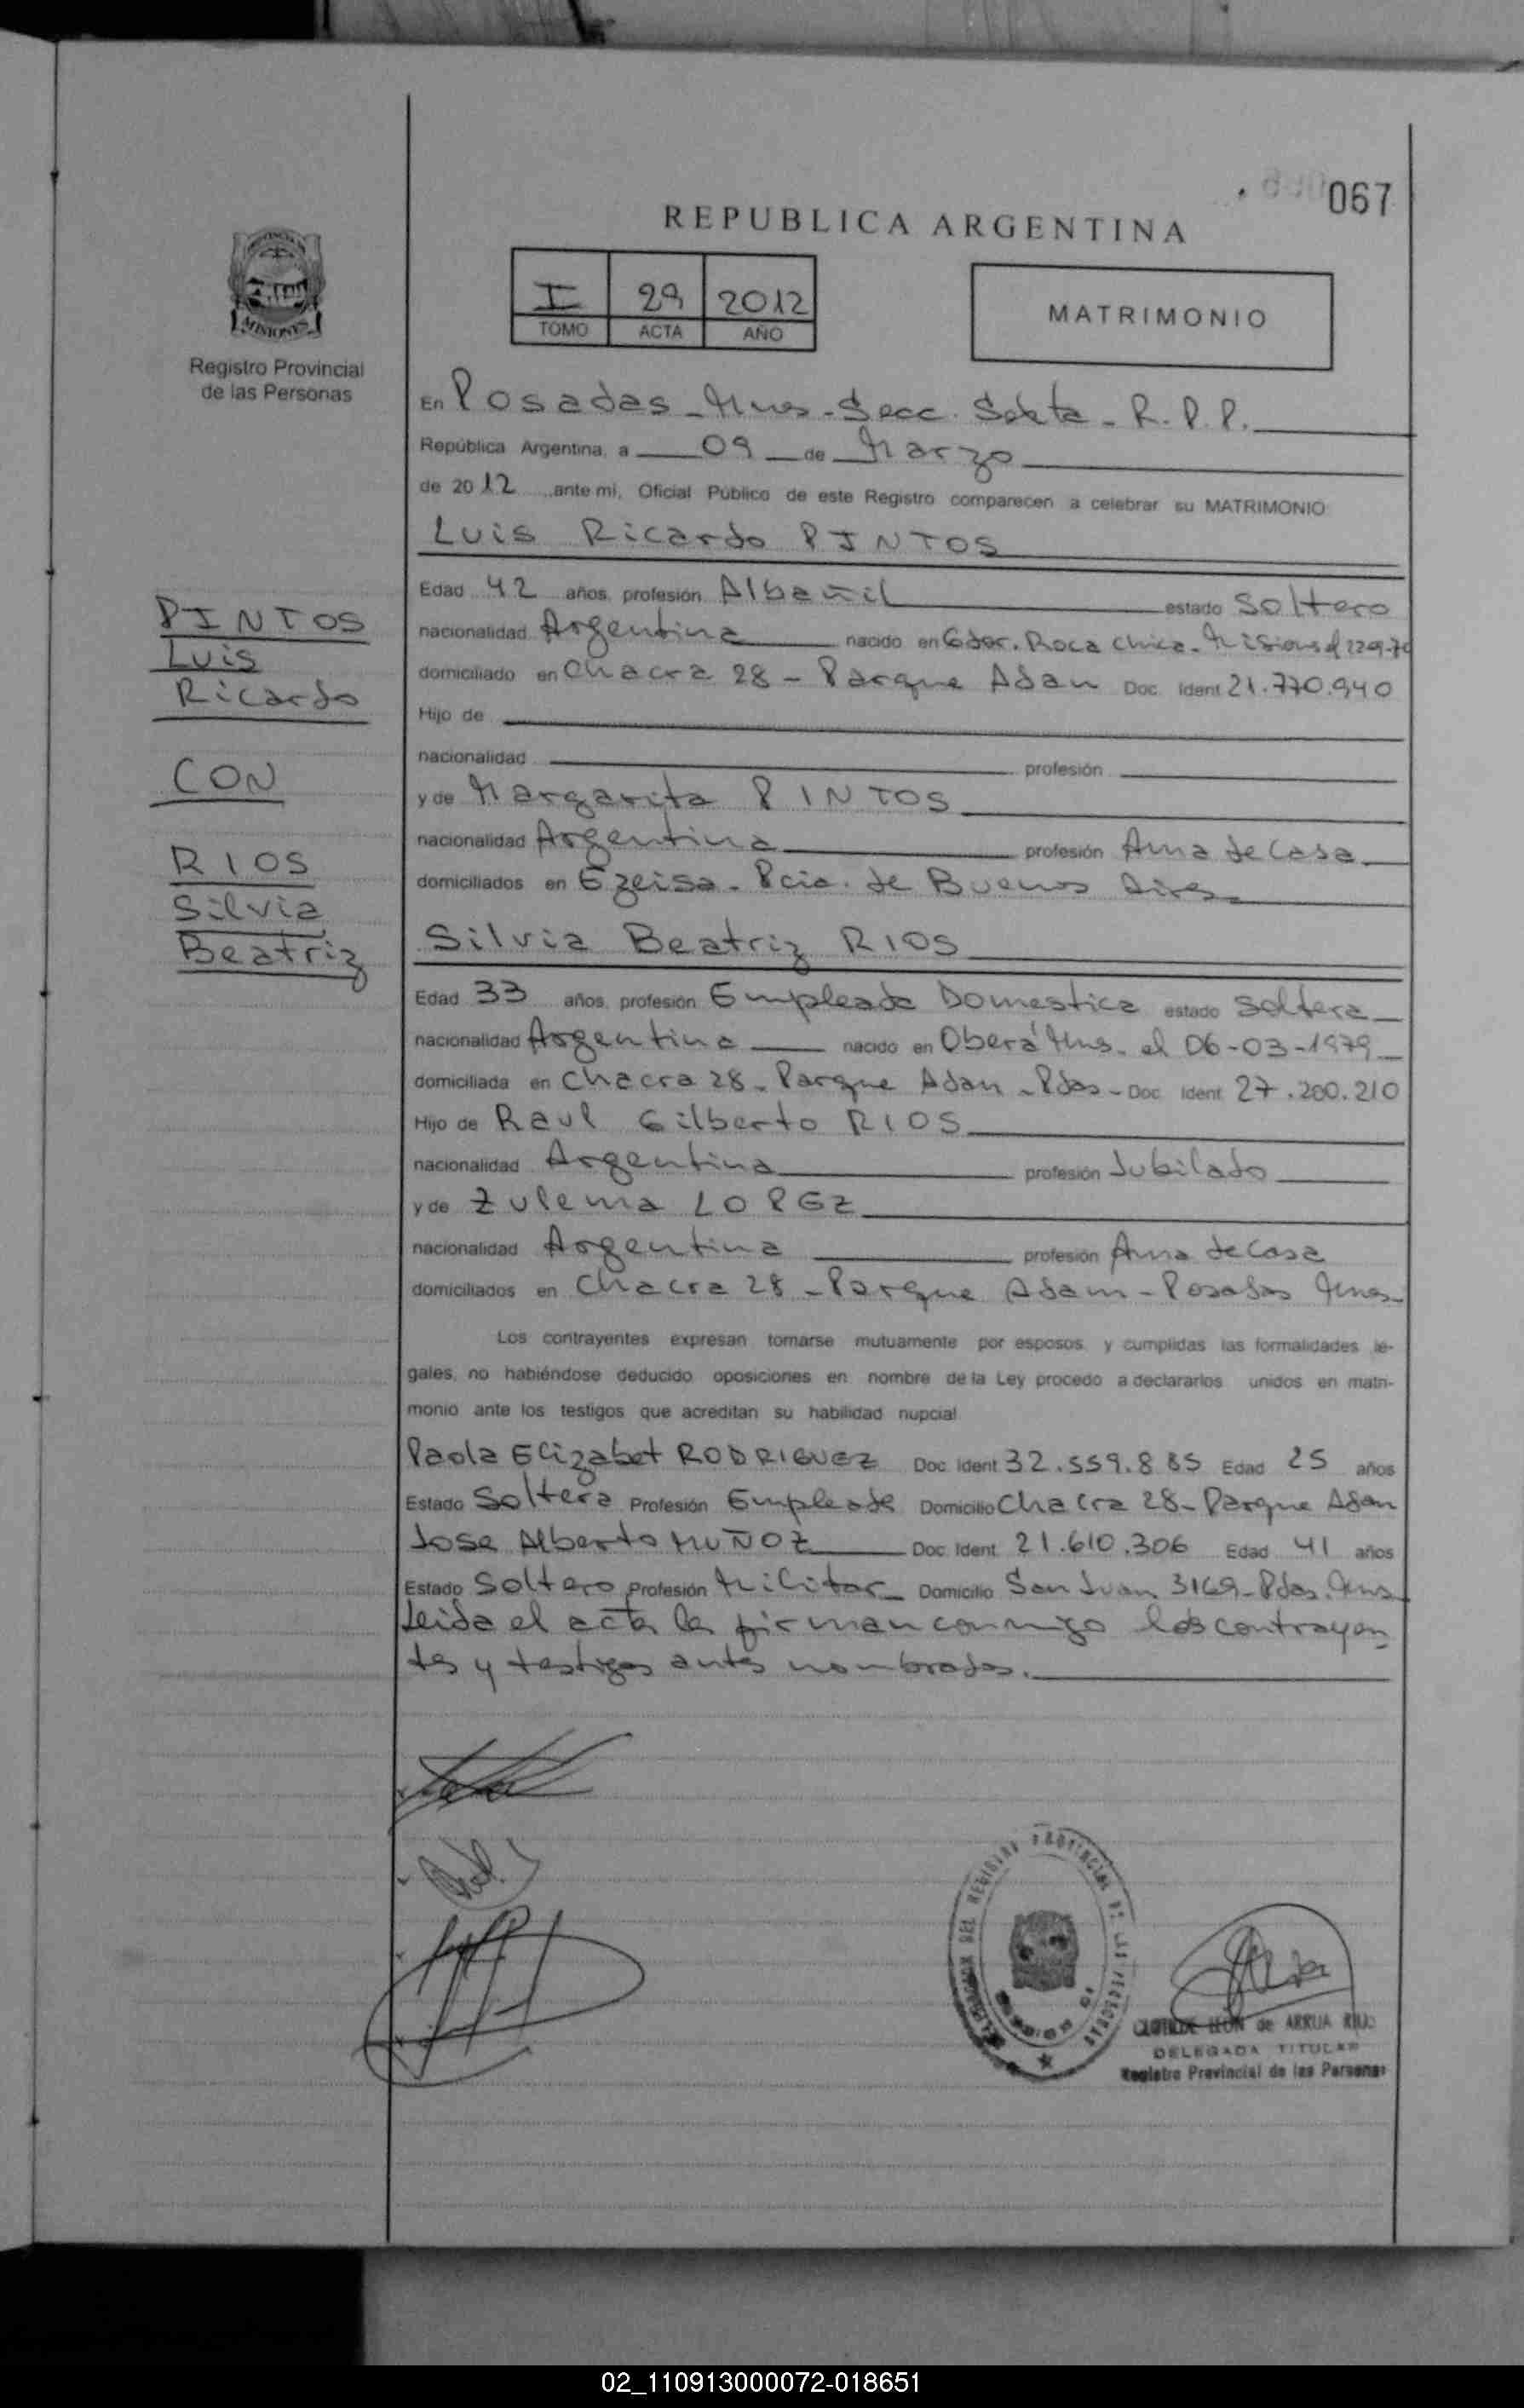 067
REPUBLICA ARGENTINA
I 29 2012
TOMO ACTA AÑO
MATRIMONIO
MISIONES
Registro Provincial
de las Personas
En Posadas - Mnes - Secc. Sexta - R.P.P.
República Argentina, a 09 de Marzo
de 2012 ante mi, Oficial Público de este Registro comparecen a celebrar su MATRIMONIO
Luis Ricardo PINTOS
Edad 42 años, profesión Albañil estado Soltero
nacionalidad Argentina nacido en Gdor. Roca Chica - Misiones el
domiciliado en Chacra 28 - Parque Adan Doc. Ident 21.770.940
Hijo de
nacionalidad profesión
y de Margarita PINTOS
nacionalidad Argentina profesión Ama de Casa
domiciliados en Ezeisa - Pcia. de Buenos Aires
Silvia Beatriz RIOS
Edad 33 años, profesión Empleada Domestica estado Soltera
nacionalidad Argentina nacido en Oberá Mns. el 06-03-1979
domiciliada en Chacra 28 - Parque Adan - Pdas - Doc. Ident 27.200.210
Hijo de Raul Gilberto RIOS
nacionalidad Argentina profesión Jubilado
y de Zulema LOPEZ
nacionalidad Argentina profesión Ama de Casa
domiciliados en Chacra 28 - Parque Adam - Posadas Mnes-
Los contrayentes expresan tomarse mutuamente por esposos, y cumplidas las formalidades le-
gales, no habiéndose deducido oposiciones en nombre de la Ley procedo a declararlos unidos en matri-
monio ante los testigos que acreditan su habilidad nupcial
Paola Elizabet RODRIGUEZ Doc. Ident 32.559.885 Edad 25 años
Estado Soltera Profesión Empleada Domicilio Chacra 28 - Parque Adan
Jose Alberto MUÑOZ Doc. Ident. 21.610.306 Edad 41 años
Estado Soltero Profesión Militar - Domicilio San Juan 3169 - Pdas. Mns.
Leida el acta la firman conmigo los contrayen
tes y testigos antes nombrados.
PINTOS
Luis
Ricardo
CON
RIOS
Silvia
Beatriz
DEL REGISTRO PROVINCIAL DE LAS PERSONAS
LEON de ARRUA
DELEGADA TITULAR
Registro Provincial de las Personas
02_110913000072-018651